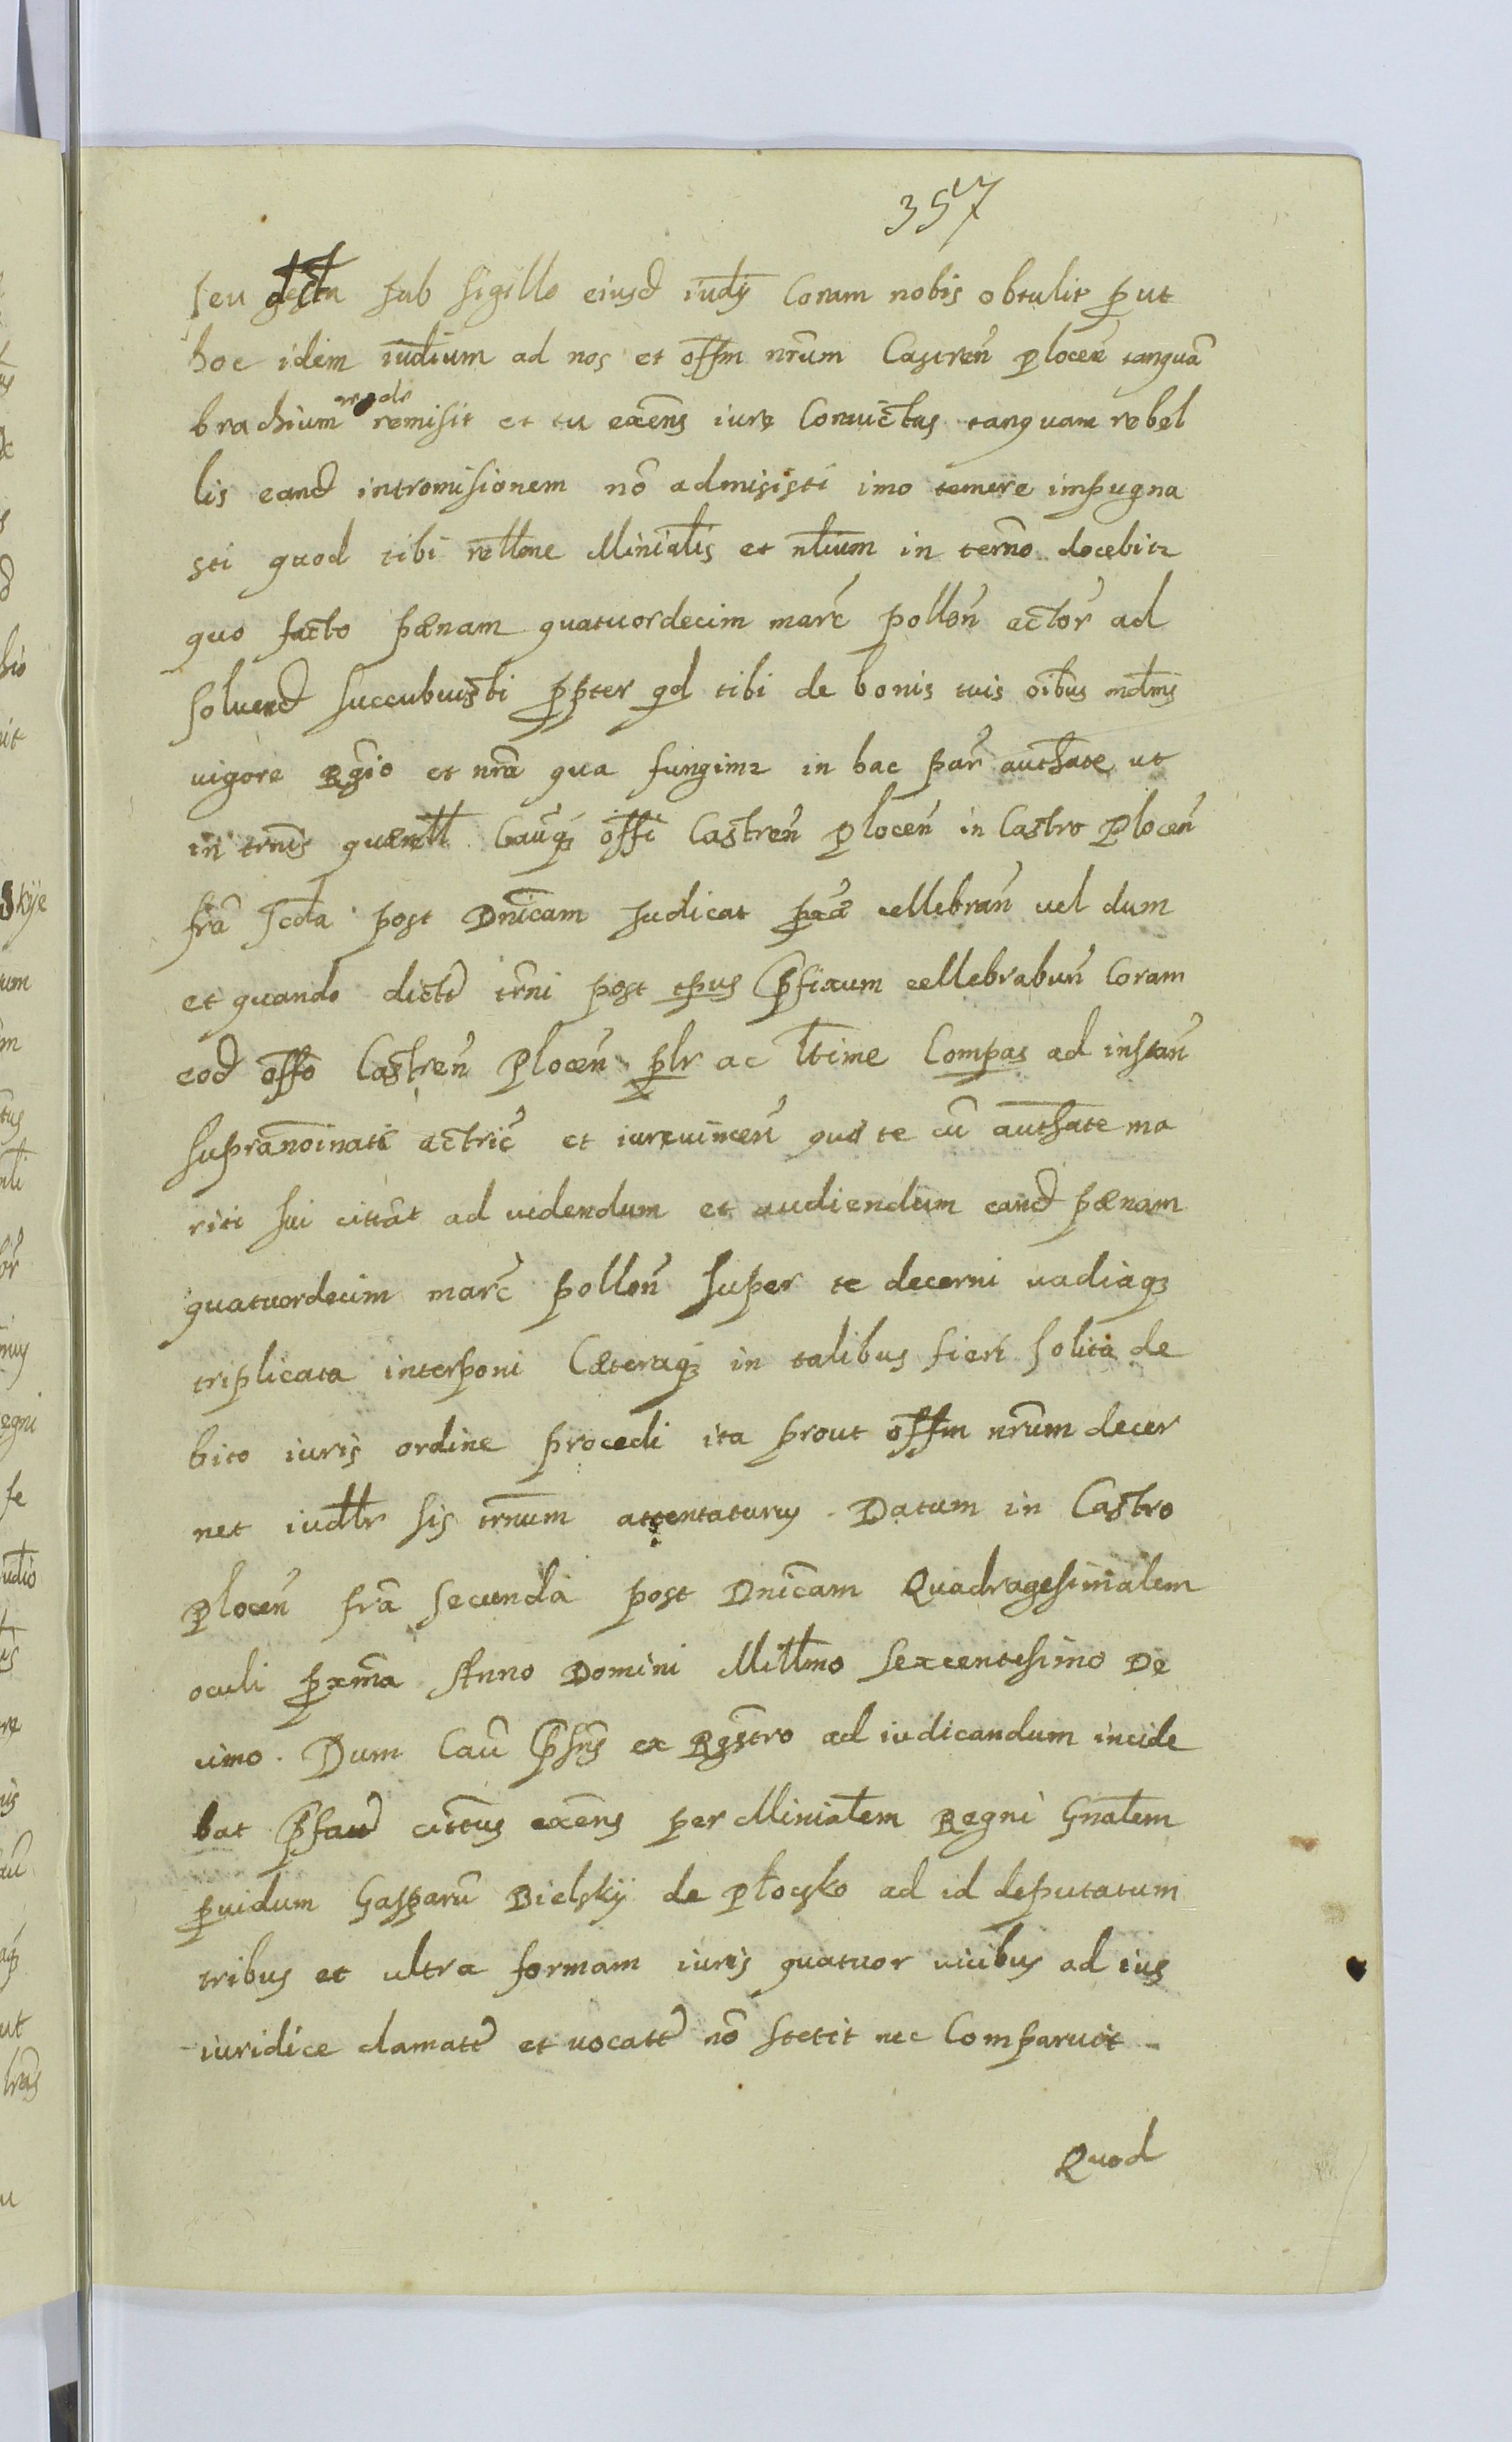 357
seu gesta sub sigillo eiusd iudÿ Coram nobis obtulit put
hoc idem iudium ad nos et offm nrum Castren plocen tanquã
brachium remisit et tu exens iure Conuictus tanquam rebel
lis eand intromisionem nõ admisisti imo temere impugna
sti quod tibi rellone Minialis et nlium in termo docebitr
quo facto pænam quatuordecim marc pollon actor ad
soluend succubuisti ppter qd tibi de bonis tuis oibus mdmis
uigore Rgio et nra qua fungimr in hac par authate ut
in trnis querell Cauq offi Castren Plocen in Castro Plocen
fra scda post Dnicam Iudicat cellebran uel dum
et quando dicti trni post tpus pfixum cellebrabun Coram
eod offo Castren Plocen plr ac ltime Compas ad instan
supranoinati actric et iureuincen quæ te cũ authate ma
riti sui citat ad videndum et audiendum eand pænam
quatuordecim marc pollon super te decerni uadiaq
triplicata interponi Cæteraq in talibus fieri solita de
bito iuris ordine procedi ita prout offm nrum decer
net iudllr sis trnum attentaturus. Datum in Castro
Plocen fra secunda post Dnicam Quadragesimalem
oculi pxma Anno Domini Millmo sexcentesimo De
cimo. Dum Cau pñs ex Rgstro ad iudicandum incide
bat pfatu cittus exens per Minialem Regni Gnalem
puidum Gasparũ Bielskÿ de Płocsko ad id deputatum
tribus et ultra formam iuris quatuor uicibus ad ius
iuridice clamatt et uocatt nõ stetit nec Comparuit
Quod